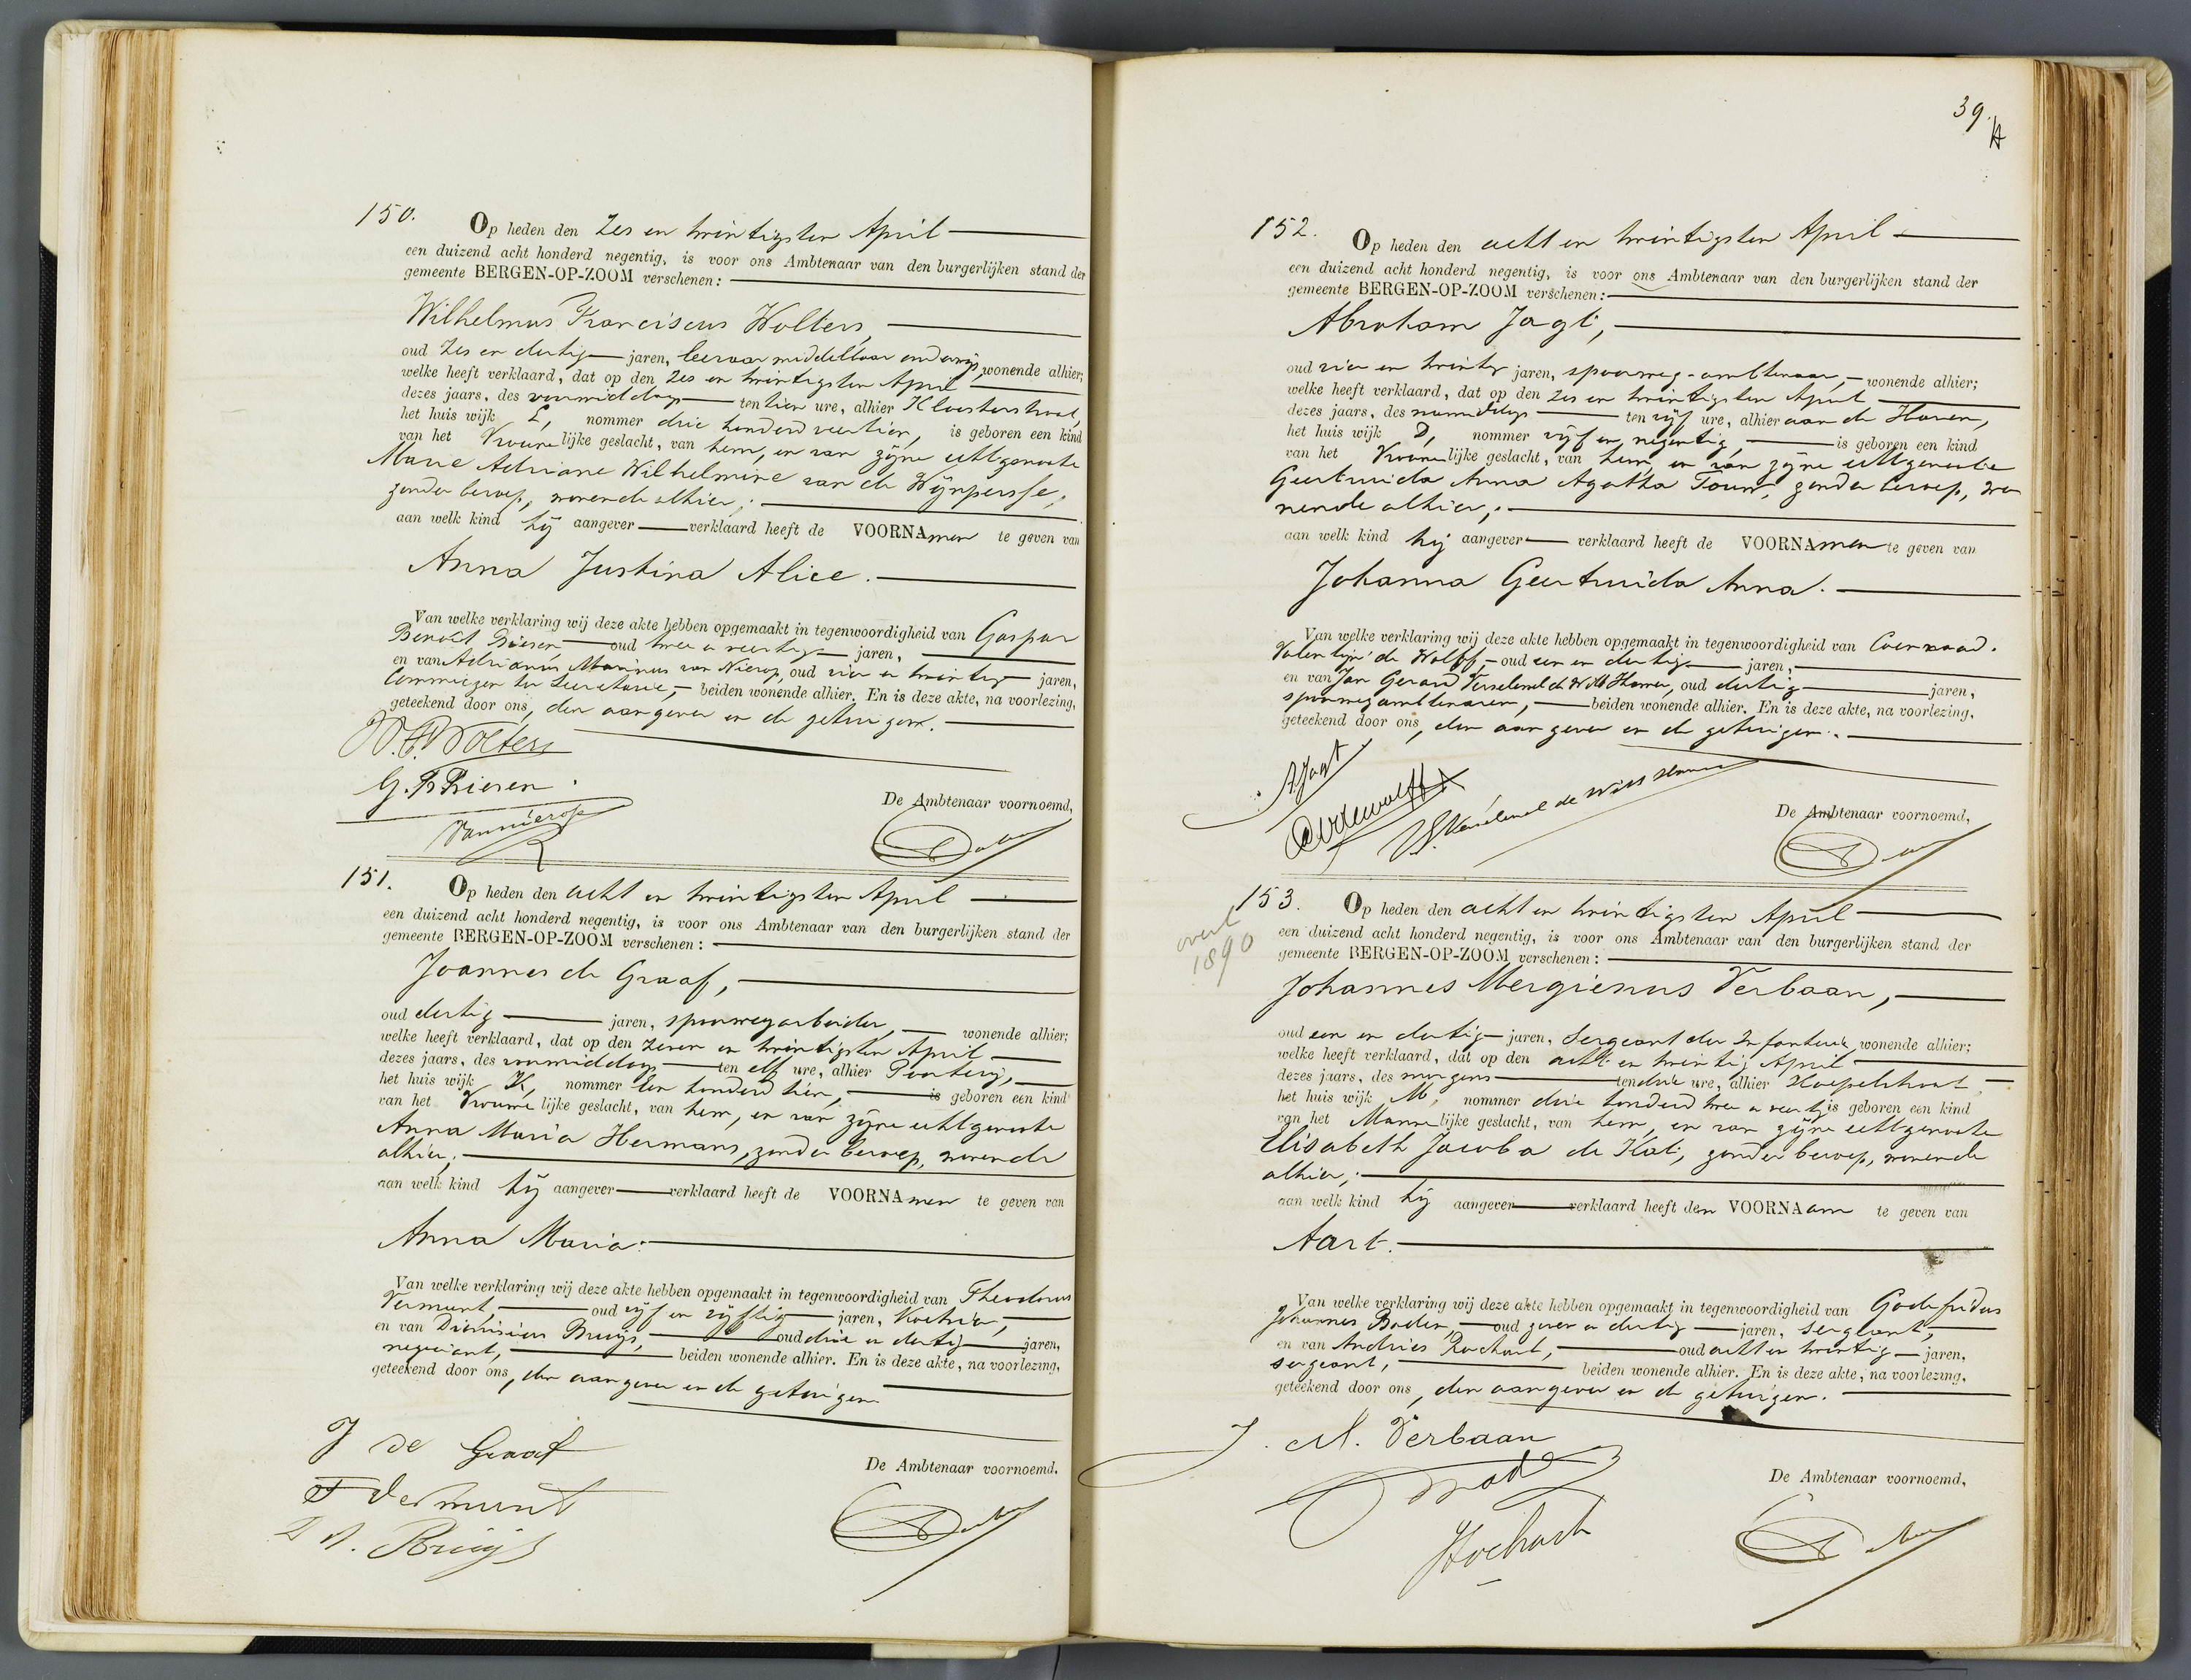 150.
Op heden den zes en twintigsten April
een duizend acht honderd negentig, is voor ons Ambtenaar van den burgerlijken stand der
gemeente BERGEN-OP-ZOOM verschenen:
Wilhelmus Franciscus Wolters,
oud zes en dertig jaren, leeraar middelbaar onderwijs, wonende alhier;
welke heeft verklaard, dat op den zes en twintigsten April
dezes jaars, des voormiddags ten tien ure, alhier Kloosterstraat,
het huis wijk E, nommer drie honderd veertien, is geboren een kind
van het Vrouwelijke geslacht, van hem, en van zijne echtgenoote
Marie Adriane Wilhelmine van de Wijnpersse,
zonder beroep, wonende alhier;
aan welk kind hij aangever verklaard heeft de VOORNAmen te geven van
Anna Justina Alice.
Van welke verklaring wij deze akte hebben opgemaakt in tegenwoordigheid van Gaspar
Benoit oud twee en veertig jaren,
en van Adrianus Marinus van Nierop, oud vier en twintig jaren,
Commiezen ter Secretarie, beiden wonende alhier. En is deze akte, na voorlezing,
geteekend door ons, den aangever en de getuigen.
W. F. Wolters
G. B
van Nierop
De Ambtenaar voornoemd,
151.
Op heden den acht en twintigsten April
een duizend acht honderd negentig, is voor ons Ambtenaar van den burgerlijken stand der
gemeente BERGEN-OP-ZOOM verschenen:
Joannes de Graaf,
oud dertig jaren, spoorwegarbeider, wonende alhier;
welke heeft verklaard, dat op den zeven en twintigsten April
dezes jaars, des voormiddags ten elf ure, alhier
het huis wijk K, nommer een honderd tien, is geboren een kind
van het Vrouwelijke geslacht, van hem, en van zijne echtgenoote
Anna Maria Hermans, zonder beroep, wonende
alhier;
aan welk kind hij aangever verklaard heeft de VOORNAmen te geven van
Anna Maria.
Van welke verklaring wij deze akte hebben opgemaakt in tegenwoordigheid van Theodorus
Vermunt, oud vijf en vijftig jaren,
en van Dionisius Bruijs, oud drie en dertig jaren,
negociant, beiden wonende alhier. En is deze akte, na voorlezing,
geteekend door ons, den aangever en de getuigen
J de Graaf
T Vermunt
D A. Bruijs
De Ambtenaar voornoemd.
39.
152.
Op heden den acht en twintigsten April
een duizend acht honderd negentig, is voor ons Ambtenaar van den burgerlijken stand der
gemeente BERGEN-OP-ZOOM verschenen:
Abraham Jagt,
oud vier en twintig jaren, spoorweg-ambtenaar, wonende alhier;
welke heeft verklaard, dat op den zes en twintigsten April
dezes jaars, des namiddags ten vijf ure, alhier aan de Haven,
het huis wijk D, nommer vijf en negentig, is geboren een kind
van het Vrouwelijke geslacht, van hem, en van zijne echtgenoote
Geertruida Anna Agatha Touw, zonder beroep, wo
nende alhier;
aan welk kind hij aangever verklaard heeft de VOORNAmen te geven van
Johanna Geertruida Anna.
Van welke verklaring wij deze akte hebben opgemaakt in tegenwoordigheid van Coenraad
Valentijn de Wolff, oud een en dertig jaren,
en van Jan Gerard Verselewel de Witt Hamer, oud dertig jaren,
spoorwegambtenaren, beiden wonende alhier. En is deze akte, na voorlezing,
geteekend door ons, den aangever en de getuigen.
A Jagt
CVdeWolff
J.G. Verselewel de Witt Hamer
De Ambtenaar voornoemd,
153.
overl
1890
Op heden den acht en twintigsten April
een duizend acht honderd negentig, is voor ons Ambtenaar van den burgerlijken stand der
gemeente BERGEN-OP-ZOOM verschenen:
Johannes Mergienus Verbaan,
oud een en dertig jaren, Sergeant der Infanterie wonende alhier;
welke heeft verklaard, dat op den acht en twintig April
dezes jaars, des morgens ten drie ure, alhier Koepelstraat,
het huis wijk M, nommer drie honderd twee en veertig is geboren een kind
van het Mannelijke geslacht, van hem, en van zijne echtgenoote
Elisabeth Jacoba de Kat, zonder beroep, wonende
alhier;
aan welk kind hij aangever verklaard heeft den VOORNAam te geven van
Aart.
Van welke verklaring wij deze akte hebben opgemaakt in tegenwoordigheid van Godefridus
Johannes oud zeven en dertig jaren, sergeant,
en van Andries Rochat, oud acht en twintig jaren,
sergeant, beiden wonende alhier. En is deze akte, na voorlezing,
geteekend door ons, den aangever en de getuigen.
J. M. Verbaan
De Ambtenaar voornoemd,